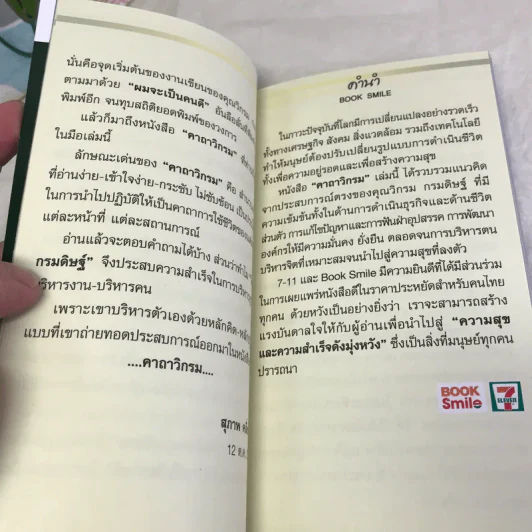 นั่นคือจุดเริ่มต้นของงานเขียนของคุณวิกรม
ตามมาด้วย “ผมจะเป็นคนดี” อันลือลั่นที่
พิมพ์อีก จนทุบสถิติยอดพิมพ์ของวงการ
แล้วก็มาถึงหนังสือ “คาถาวิกรม”
ในมือเล่มนี้
ลักษณะเด่นของ “คาถาวิกรม” คือ
ที่อ่านง่าย-เข้าใจง่าย-กระชับ ไม่ซับซ้อน
ในการนำไปปฏิบัติให้เป็นคาถาการใช้ชีวิตของ
แต่ละหน้าที่ แต่ละสถานการณ์
อ่านแล้วจะตอบคำถามได้บ้าง ส่วนว่าทำไม
กรมดิษฐ์” จึงประสบความสำเร็จในการบริหาร
บริหารงาน-บริหารคน
เพราะเขาบริหารตัวเองด้วยหลักคิด-หลัก
แบบที่เขาถ่ายทอดประสบการณ์ออกมาในหนังสือ
....คาถาวิกรม....
สุภาพ
12 ต.ค.
คำนำ
BOOK SMILE
ในภาวะปัจจุบันที่โลกมีการเปลี่ยนแปลงอย่างรวดเร็ว
ทั้งทางเศรษฐกิจ สังคม สิ่งแวดล้อม รวมถึงเทคโนโลยี
ทำให้มนุษย์ต้องปรับเปลี่ยนรูปแบบการดำเนินชีวิต
ทั้งเพื่อความอยู่รอดและเพื่อสร้างความสุข
หนังสือ “คาถาวิกรม” เล่มนี้ ได้รวบรวมแนวคิด
จากประสบการณ์ตรงของคุณวิกรม กรมดิษฐ์ ที่มี
ความเข้มข้นทั้งในด้านการดำเนินธุรกิจและด้านชีวิต
ส่วนตัว การแก้ไขปัญหาและการฟันฝ่าอุปสรรค การพัฒนา
องค์กรให้มีความมั่นคง ยั่งยืน ตลอดจนการบริหารตน
บริหารจิตที่เหมาะสมจนนำไปสู่ความสุขที่ลงตัว
7-11 และ Book Smile มีความยินดีที่ได้มีส่วนร่วม
ในการเผยแพร่หนังสือดีในราคาประหยัดสำหรับคนไทย
ทุกคน ด้วยหวังเป็นอย่างยิ่งว่า เราจะสามารถสร้าง
แรงบันดาลใจให้กับผู้อ่านเพื่อนำไปสู่ “ความสุข
และความสำเร็จดังมุ่งหวัง” ซึ่งเป็นสิ่งที่มนุษย์ทุกคน
ปรารถนา
BOOK
Smile
7
ELEVEN